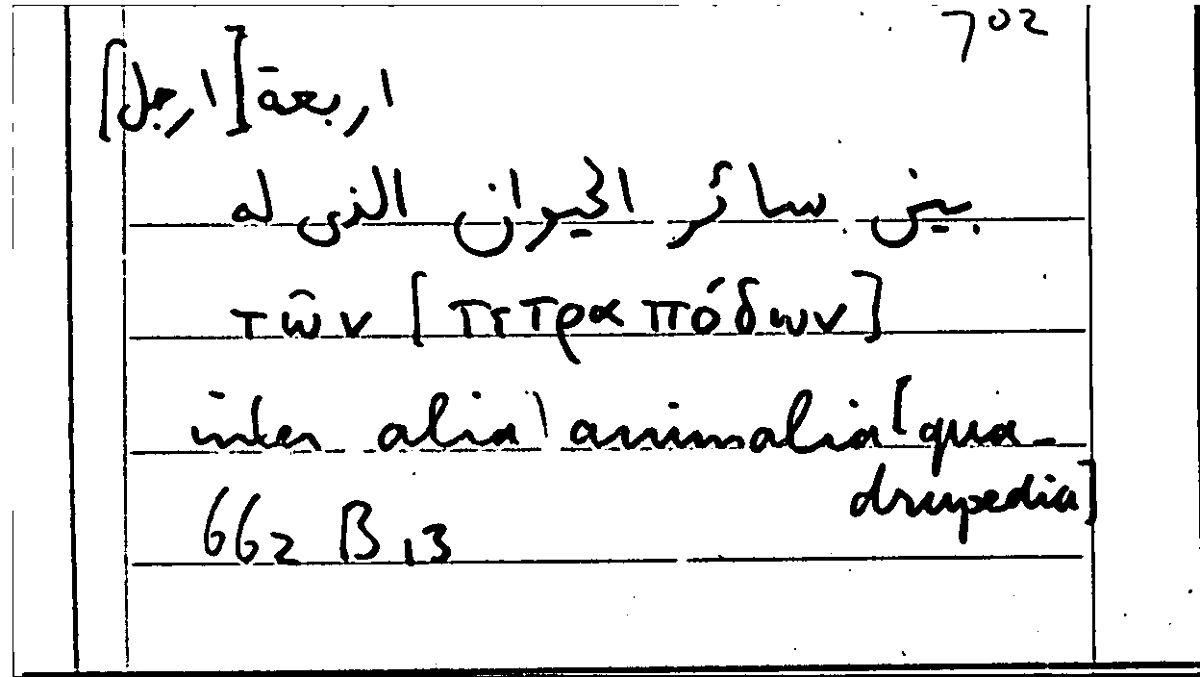 702
اربعة [ارجل]
بين سائر الحيوان الذى له
τῶν [τετραπόδων]
inter alia animalia [qua-
drupedia]
662 B 13